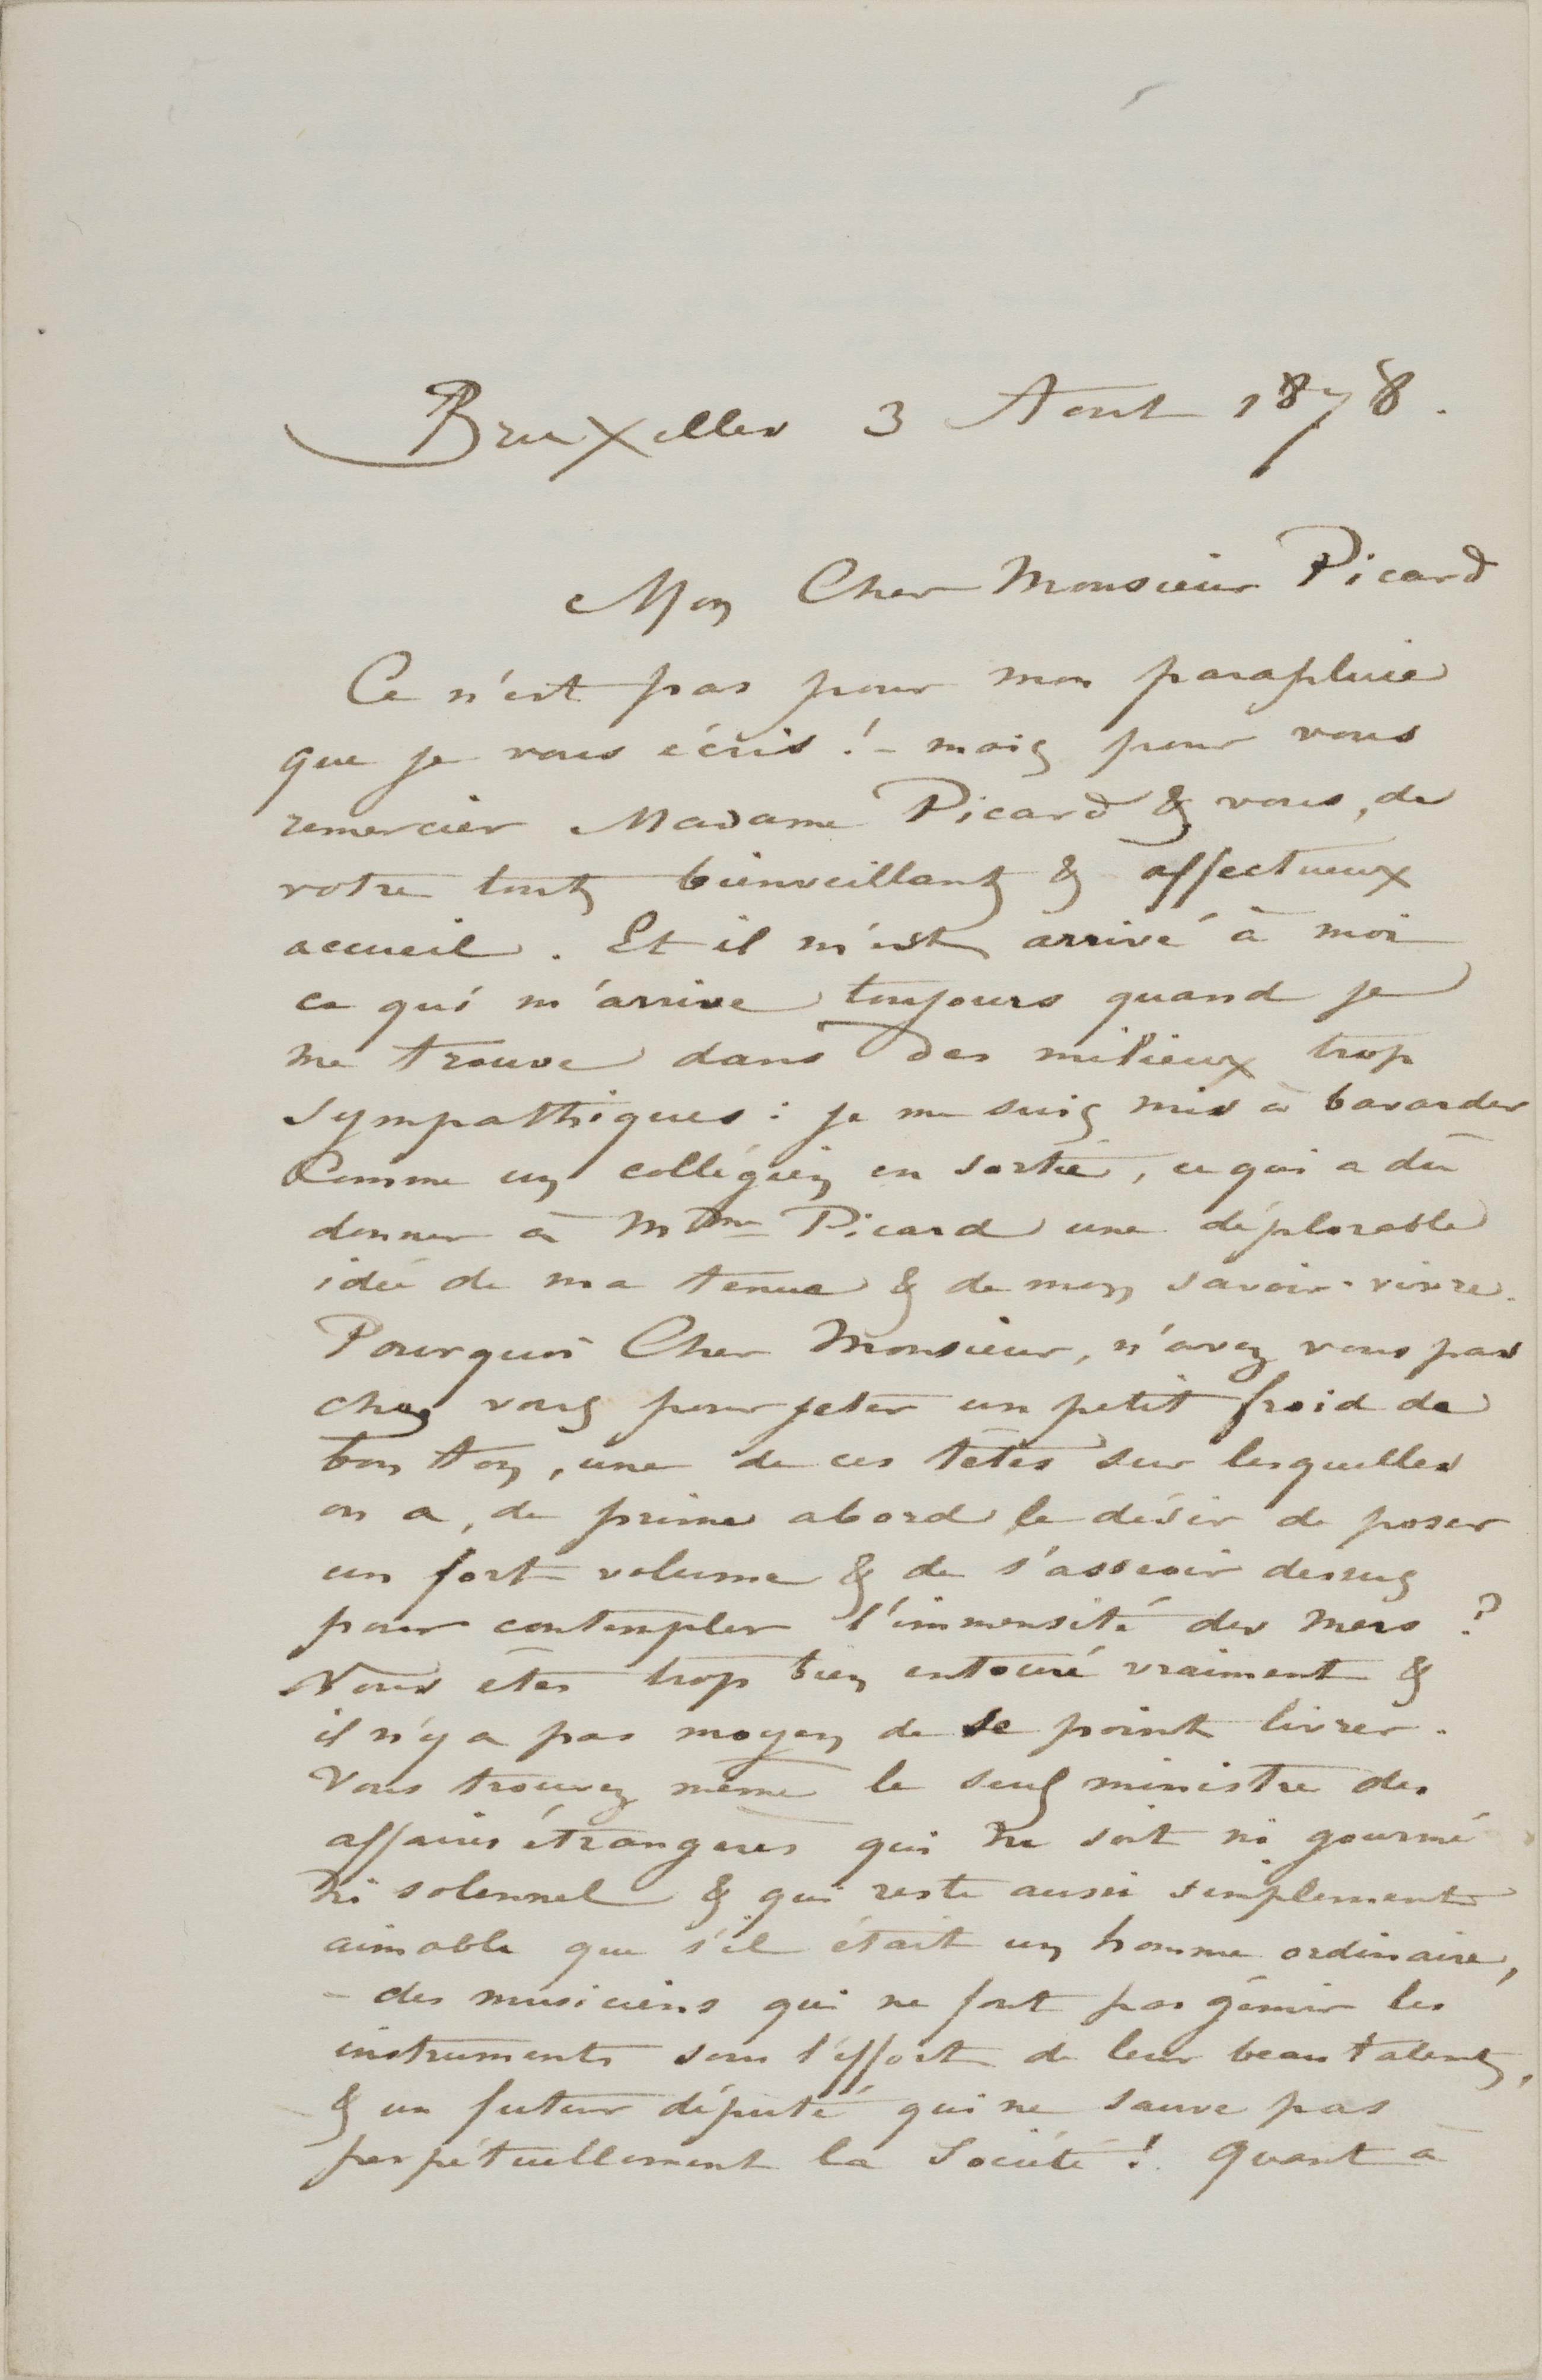 Bruxelles 3 Aout 1878.
Mon Cher Monsieur Picard
Ce n'est pas pour mon parapluie
que je vous écris ! - mais pour vous
remercier Madame Picard & vous, de
votre tout bienveillant & affectueux
accueil. Et il m'est arrivé à moi
ce qui m'arrive toujours quand je
me trouve dans des milieux trop
sympathiques : je me suis mis à bavarder
Comme un collégien en sortie, ce qui a dû
donner à Mme Picard une déplorable
idée de ma tenue & de mon savoir-vivre.
Pourquoi Cher Monsieur, n'avez vous pas
chez vous pour jeter un petit froid de
bon ton, une de ces têtes sur lesquelles
on a, de prime abord le désir de poser
un fort volume & de s'asseoir dessus
pour contempler l'immensité des mers ?
Vous êtes trop bien entouré vraiment &
il n'y a pas moyen de se point livrer.
Vous trouvez même le seul ministre des
affaires étrangères qui ne soit ni gourmé
ni solennel & qui reste aussi simplement
aimable que s'il était un homme ordinaire,
- des musiciens qui ne font pas gémir les
instruments sous l'effort de leur beau talent,
& un futur député qui ne sauve pas
perpétuellement la Société ! Quant à